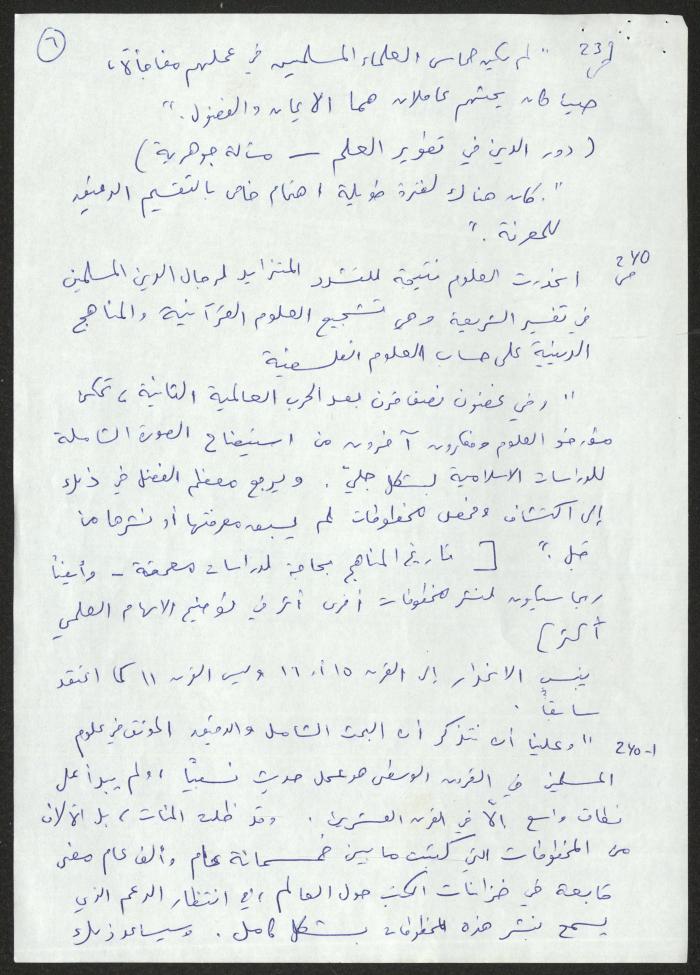 ٦
ص 239 " لم يكن حماس العلماء المسلمين في عملهم مفاجأة،
حيث كان يحثهم عاملان هما الايمان والفضول. "
( دور الدين في تطوير العلم — مسألة جوهرية )
" كان هناك لفترة طويلة اهتمام خاص بالتقسيم الدقيق
للمعرفة. "
ص 240 انحدرت العلوم نتيجة للتشدد المتزايد لرجال الدين المسلمين
في تفسير الشريعة وهي تشجيع العلوم القرآنية والمناهج
الدينية على حساب العلوم الفلسفية
" وفي غضون نصف قرن بعد الحرب العالمية الثانية، تمكن
مؤرخو العلوم ومفكرون آخرون من استيضاح الصورة الشاملة
للدراسات الاسلامية بشكل جليّ. ويرجع معظم الفضل في ذلك
إلى اكتشاف وفحص مخطوطات لم يسبق معرفتها أو نشرها من
قبل. " [ تاريخ المناهج بحاجة لدراسات معمقة – وأيضاً
ربما سيكون لنشر مخطوطات أخرى أثر في توضيح الاسهام العلمي
أكثر )
ينسب الانحدار إلى القرن ١٥ أو ١٦ وليس القرن ١١ كما اعتقد
سابقاً .
240-1 " وعلينا أن نتذكر أن البحث الشامل والدقيق الموثق في علوم
المسلمين في القرون الوسطى هو عمل حديث نسبيّاً ، ولم يبدأ على
نطاق واسع إلّا في القرن العشرين . وقد ظلت المئات ، بل الآلاف
من المخطوطات التي كتبت ما بين خمسمائة عام وألف عام مضى
قابعة في خزانات الكتب حول العالم ، في انتظار الدعم الذي
يسمح بنشر هذه المخطوطات بشكل كامل . وسيساعد ذلك